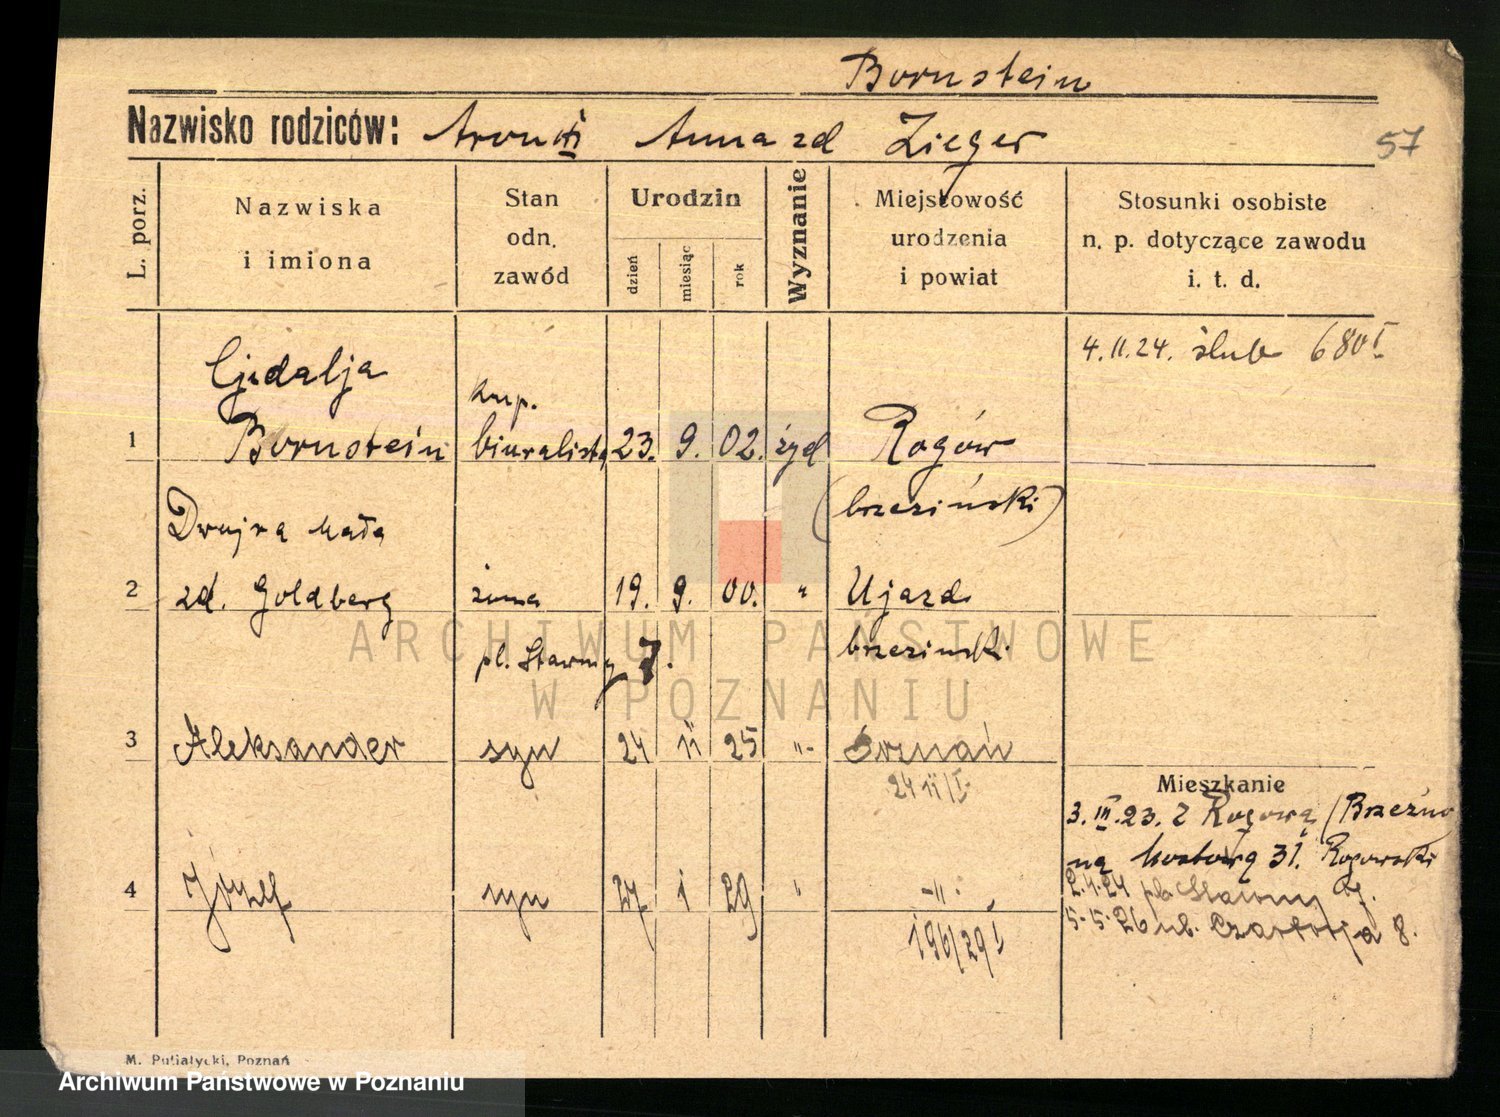 Bornstein
Nazwisko rodziców: Anna zd Zieger
57
L. porz.
Nazwiska i imiona
Stan odn. zawód
Urodzin
dzień miesiąc rok
Wyznanie
Miejscowość urodzenia i powiat
Stosunki osobiste n. p. dotyczące zawodu i. t. d.
4.II.24. ślub 680 I
Gjdalja
kup.
1 Bornstein biuralista 23. 9. 02. żyd Rogów
(brzeziński)
Drojra Mała
2 zd. Goldberg żona 19. 9. 00. " Ujazd
pl. Stawny 7.
brzezinski
3 Aleksander syn 24 11 25 "- Poznań
24 11/I
Mieszkanie
3. III. 23. z Rogowa
31. Rogowski
4 Józef syn 27 1 29 " -"-
2.4.24 pl. Stawny 7.
5-5-26 ub. 8.
196/29 I
M. Putiatycki, Poznań
ARCHIWUM PAŃSTWOWE
W POZNANIU
Archiwum Państwowe w Poznaniu